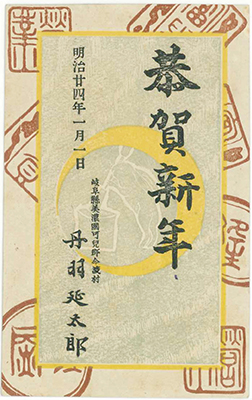 恭賀新年
明治廿四年一月一日
岐阜縣美濃國可兒郡今渡村
丹羽延太郎